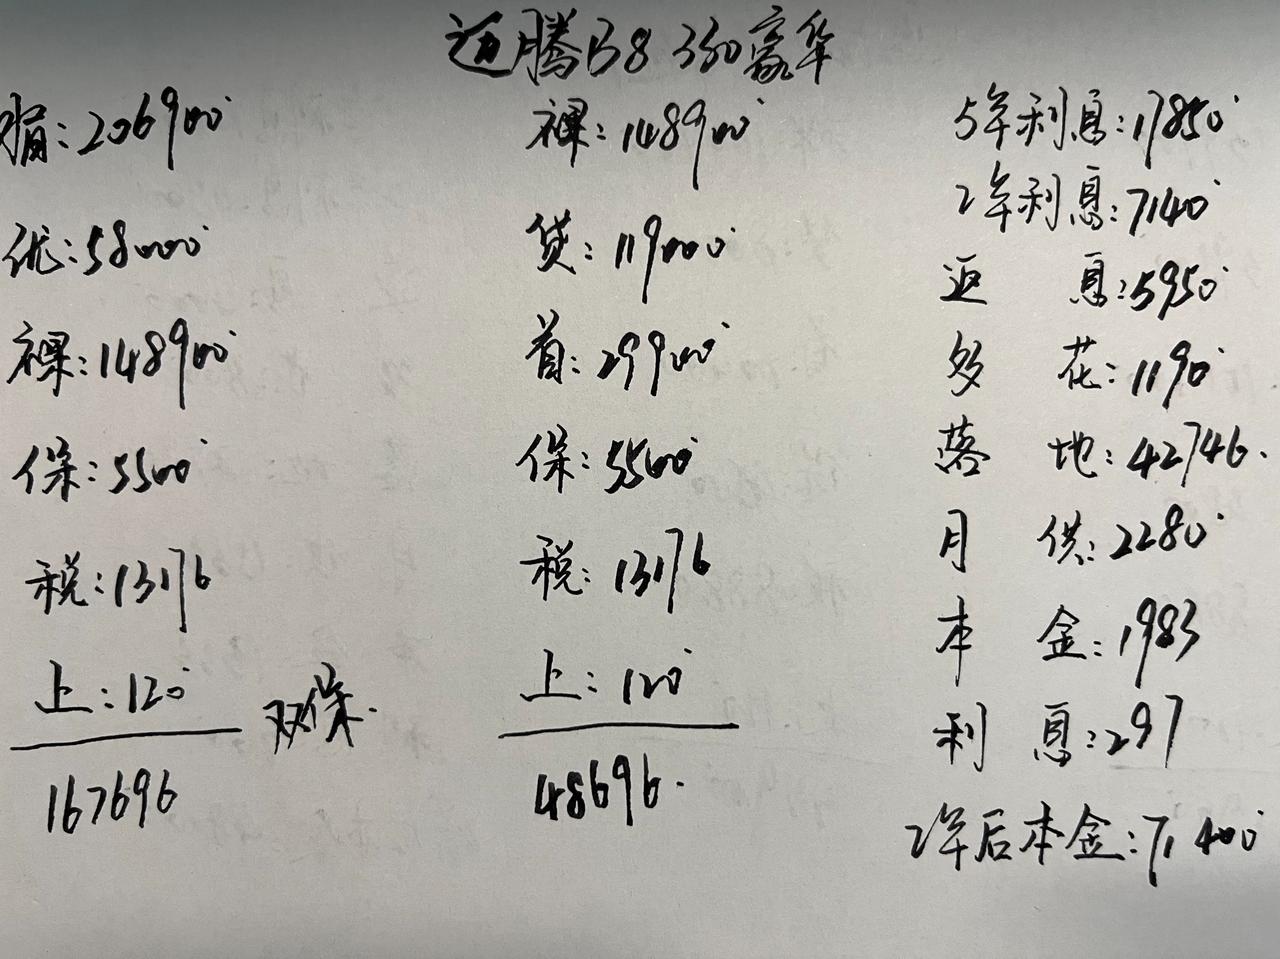 迈腾B8 330豪华
指:206900
优:58000
裸:148900
保:5500
税:13176
上:120
双保.
167696
裸:148900
贷:119000
首:29900
保:5500
税:13176
上:120
48696.
5年利息:17850
2年利息:7140
返息:5950
多花:1190
落地:42746.
月供:2280
本金:1983
利息:297
2年后本金:71400